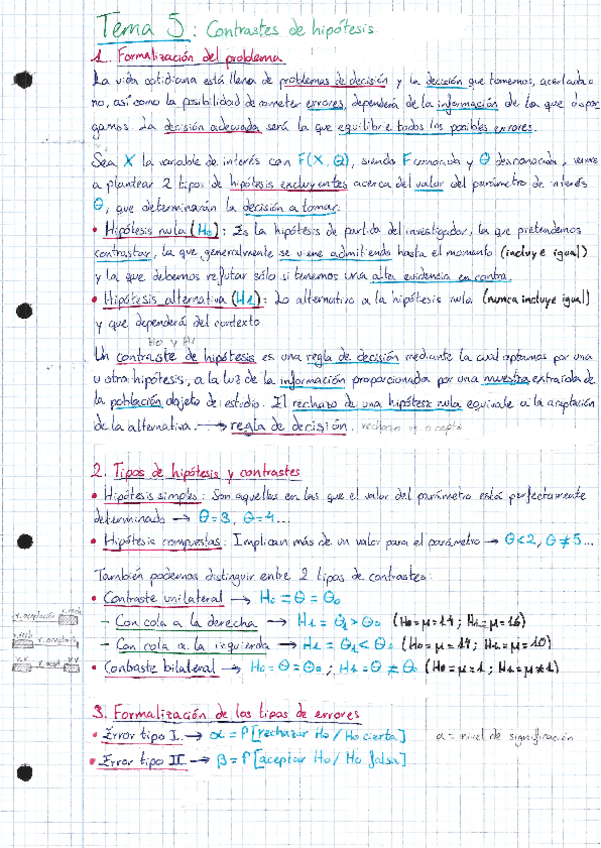 Tema 5: Contrastes de hipótesis
1. Formalización del problema
La vida cotidiana está llena de problemas de decisión y la decisión que tomemos, acertada o
no, así como la posibilidad de cometer errores, dependerá de la información de la que dispon
gamos. La decisión adecuada será la que equilibre todos los posibles errores.
Sea X la variable de interés con F(X, θ), siendo F conocida y θ desconocida, vamos
a plantear 2 tipos de hipótesis excluyentes acerca del valor del parámetro de interés
θ, que determinarán la decisión a tomar:
• Hipótesis nula (H0): Es la hipótesis de partida del investigador, la que pretendemos
contrastar, la que generalmente se viene admitiendo hasta el momento (incluye igual)
y la que debemos refutar sólo si tenemos una alta evidencia en contra
• Hipótesis alternativa (H1): Lo alternativo a la hipótesis nula (nunca incluye igual)
y que dependerá del contexto
H0 y H1
Un contraste de hipótesis es una regla de decisión mediante la cual optamos por una
u otra hipótesis, a la luz de la información proporcionada por una muestra extraída de
la población objeto de estudio. El rechazo de una hipótesis nula equivale a la aceptación
de la alternativa. → regla de decisión. rechazo y acepto
2. Tipos de hipótesis y contrastes
• Hipótesis simples: Son aquellas en las que el valor del parámetro está perfectamente
determinado → θ=3, θ=4...
• Hipótesis compuestas: Implican más de un valor para el parámetro → θ<2, θ≠5...
También podemos distinguir entre 2 tipos de contrastes:
• Contraste unilateral → H0 = θ = θ0
– Con cola a la derecha → H1 = θ1 > θ0 (H0=μ=14; H1=μ=16)
– Con cola a la izquierda → H1 = θ1 < θ0 (H0=μ=14; H1=μ=10)
• Contraste bilateral → H0=θ=θ0; H1=θ≠θ0 (H0=μ=1; H1=μ≠1)
3. Formalización de los tipos de errores
• Error tipo I → α = P[rechazar H0 / H0 cierta] α = nivel de significación
• Error tipo II → β = P[aceptar H0 / H0 falsa]